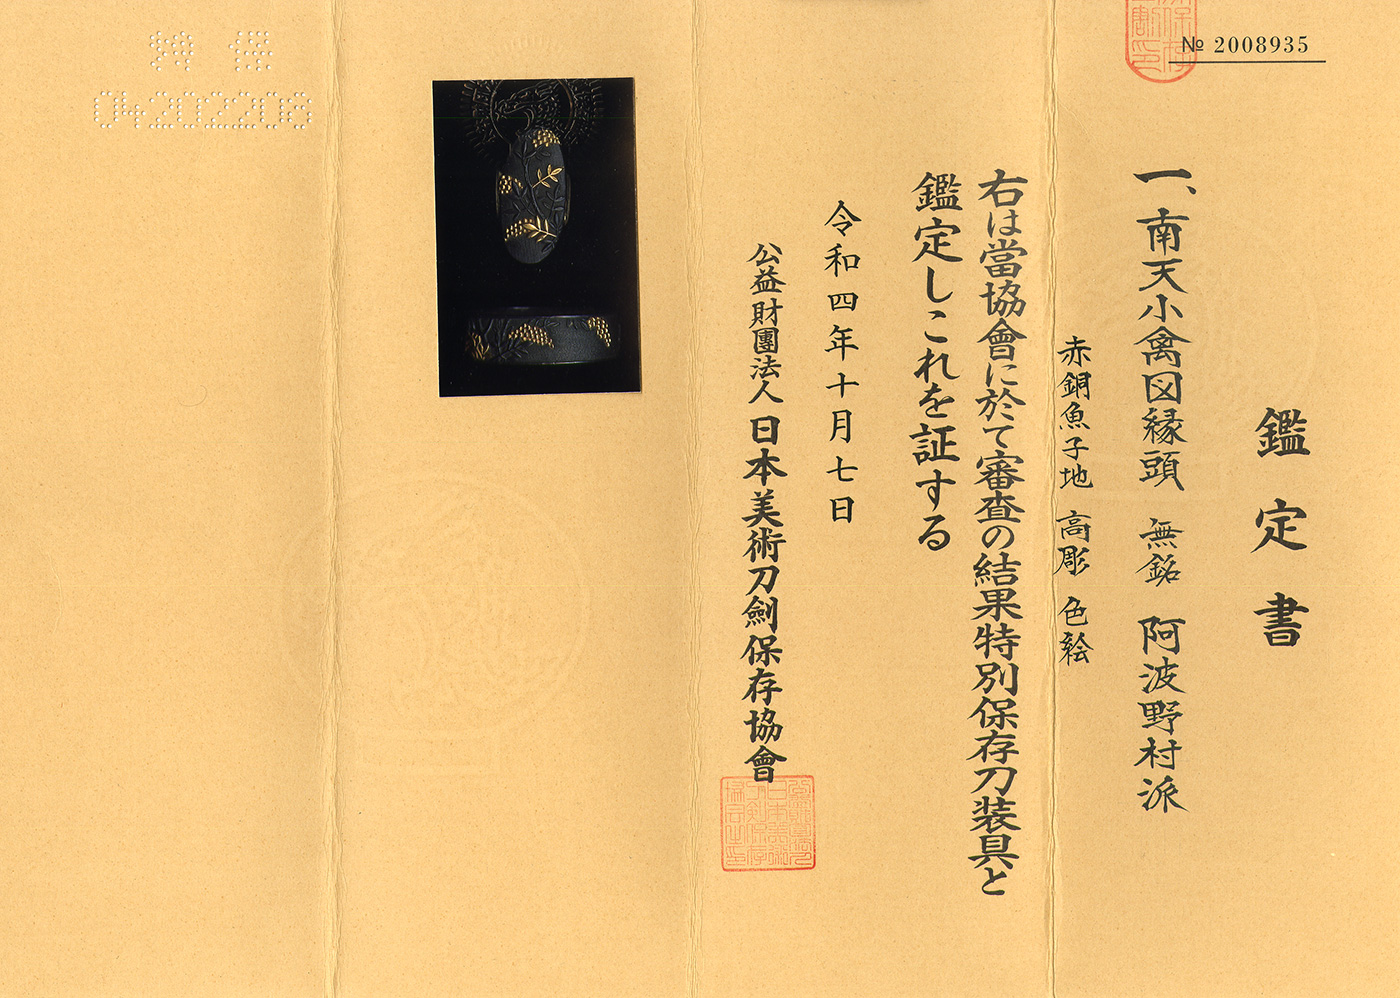 № 2008935
鑑定書
一、南天小禽図縁頭 無銘 阿波野村派
赤銅魚子地 高彫 色絵
右は當協會に於て審査の結果特別保存刀装具と
鑑定しこれを証する
令和四年十月七日
公益財團法人 日本美術刀劍保存協會
04202208